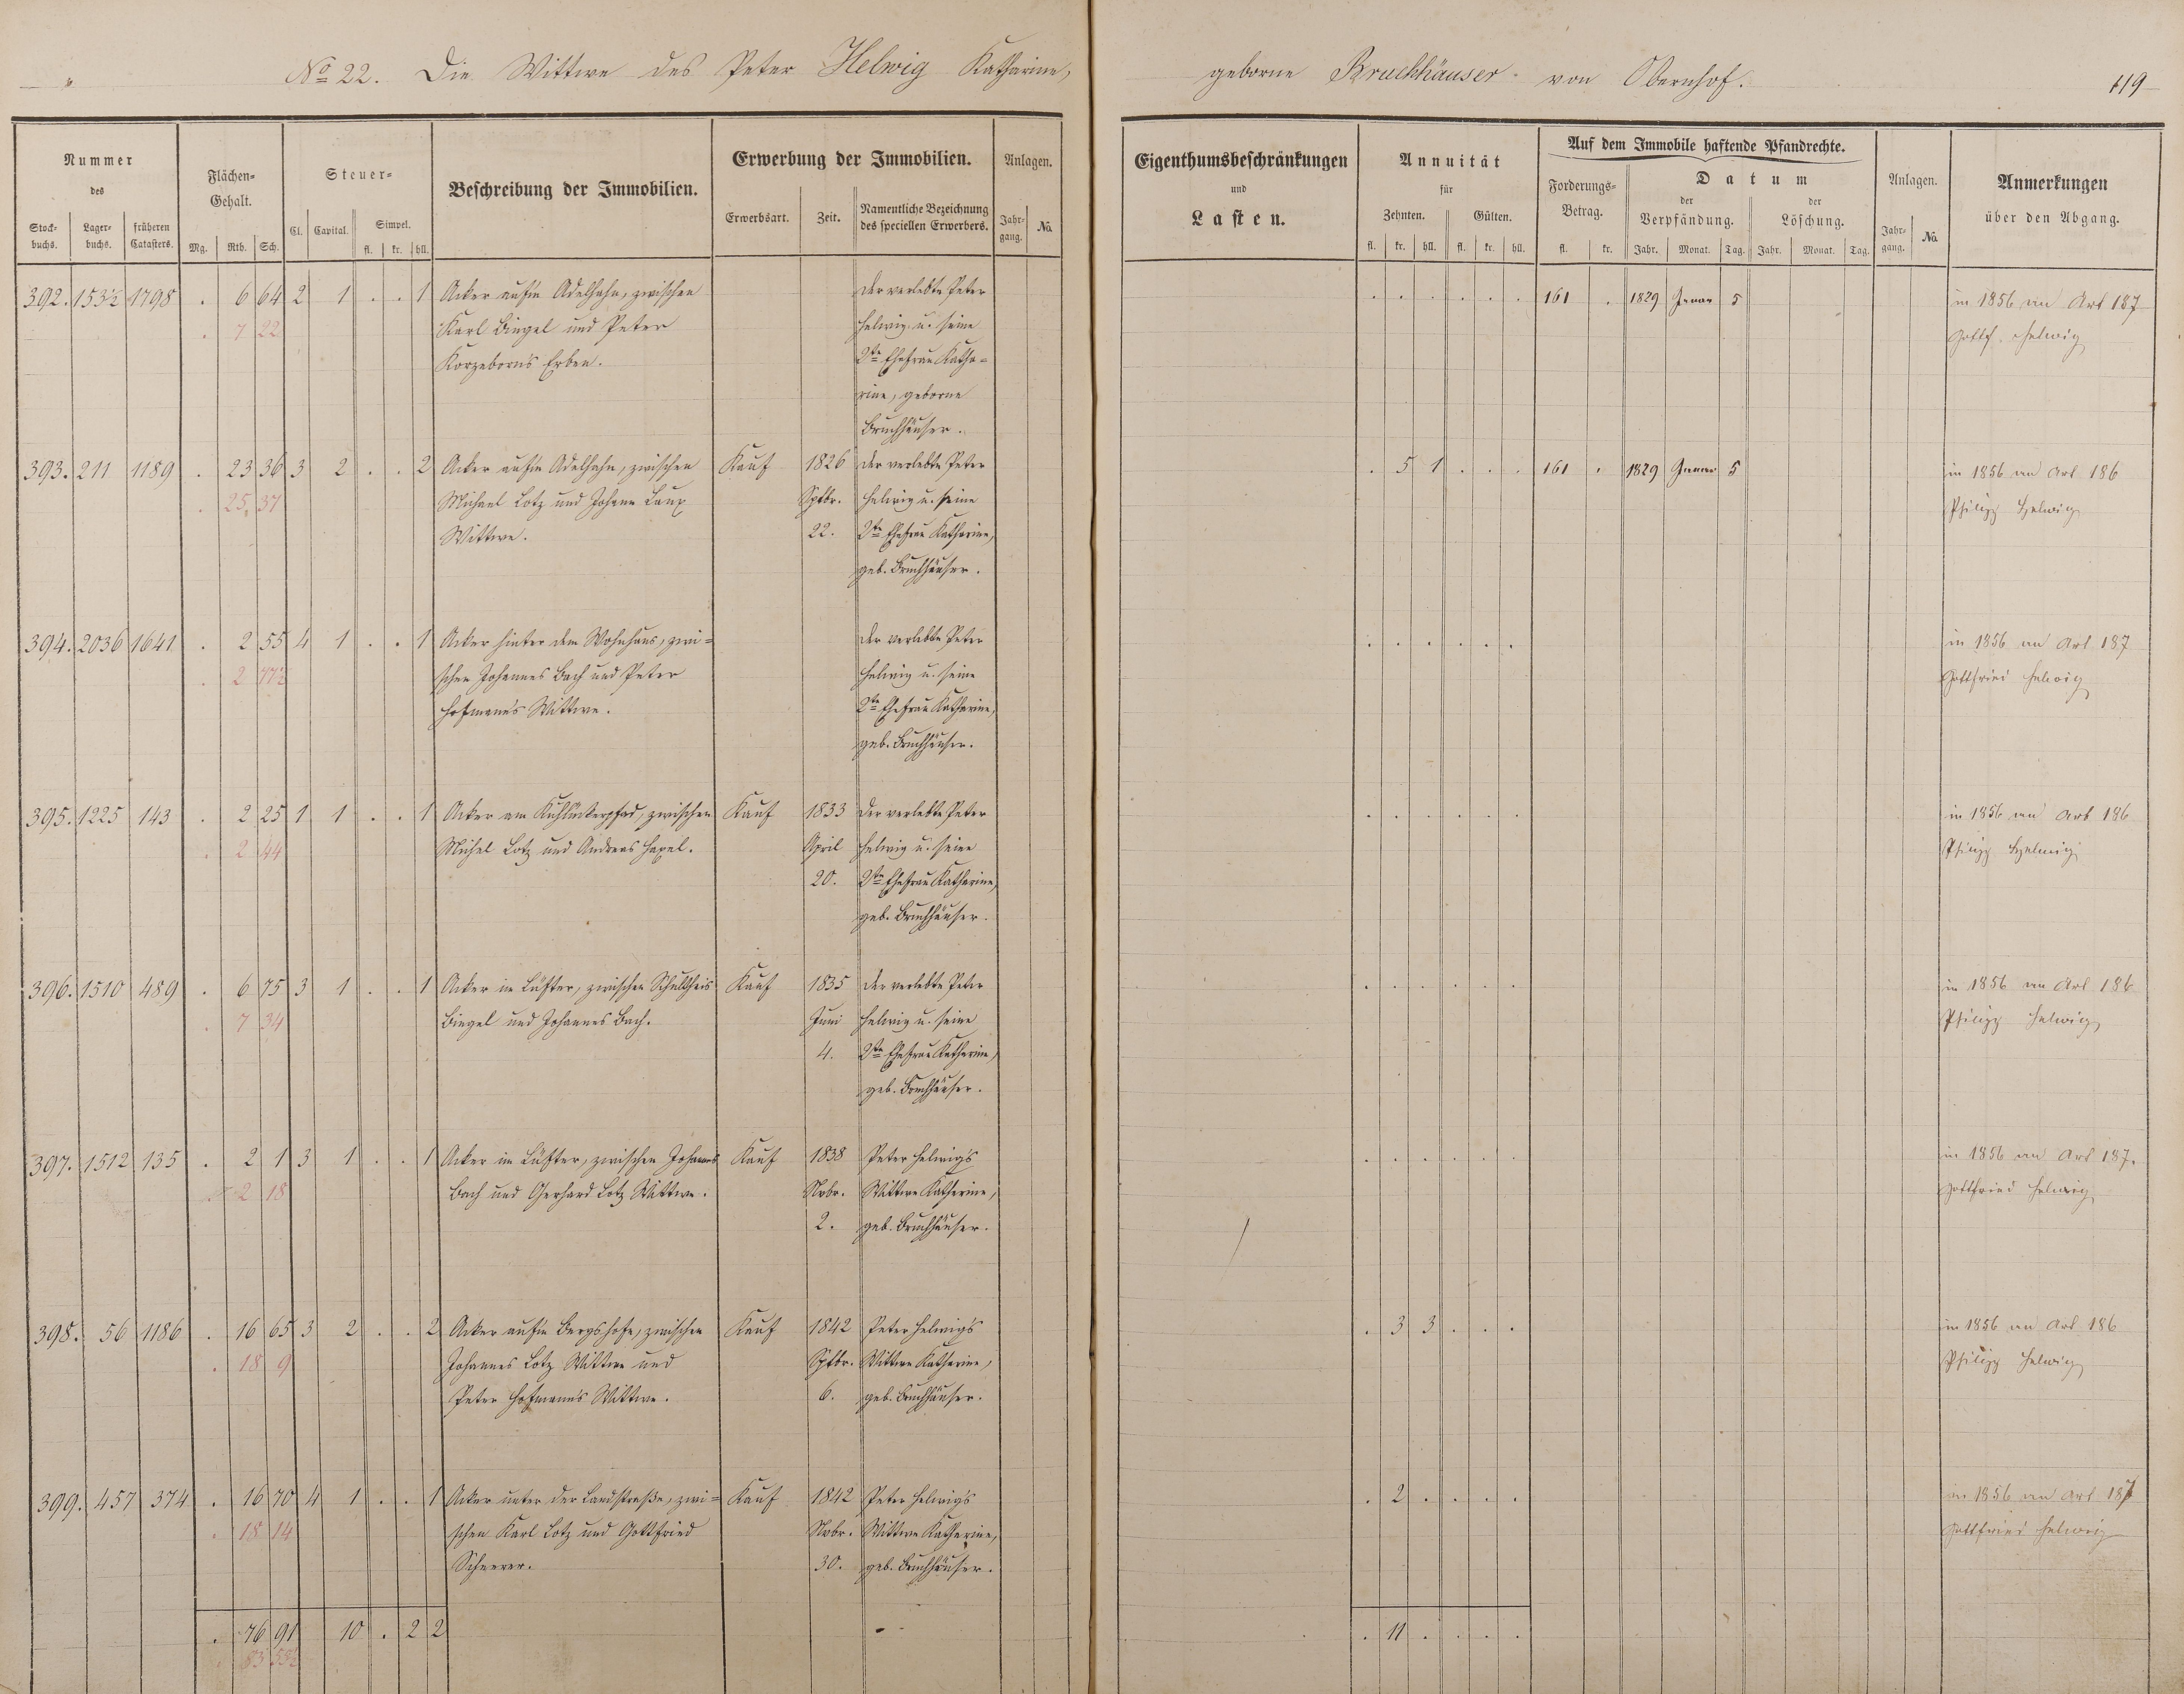 No 22. Die Wittwe des Peter Helwig Katharine, geborne Bruchhäuser von Obernhof. 119
Nummer des
Stockbuchs. Lagerbuchs. früheren Catasters.
Flächen-Gehalt.
Mg. Rth. Sch.
Steuer-
Cl. Capital. Simpel.
fl. kr. hll.
Beschreibung der Immobilien.
Erwerbung der Immobilien.
Erwerbsart. Zeit. Namentliche Bezeichnung des speciellen Erwerbers.
Anlagen.
Jahrgang. No.
Eigenthumsbeschränkungen und Lasten.
Annuität für
Zehnten. Gülten.
fl. kr. hll. fl. kr. hll.
Auf dem Immobile haftende Pfandrechte.
Forderungs-Betrag.
fl. kr.
Datum
der Verpfändung. der Löschung.
Jahr. Monat. Tag. Jahr. Monat. Tag.
Anlagen.
Jahrgang. No.
Anmerkungen über den Abgang.
392. 153½ 1798 . 6 64 2 1 . . 1 Acker auf'm Adelhahn, zwischen der verlebte Peter . . . . . . 161 . 1829 Januar 5 in 1856 an Art 187
. 7 22 Karl Bingel und Peter Helwig u. seine Gottf. Helwig
Korzeborn's Erben. 2te Ehefrau Katha-
rine, geborne
Bruchhäuser.
393. 211 1189 . 23 36 3 2 . . 2 Acker auf'm Adelhahn, zwischen Kauf 1826 der verlebte Peter . 5 1 . . . 161 . 1829 Januar 5 in 1856 an Art 186
. 25 37 Michael Lotz und Johann Laux Sptbr. Helwig u. seine Philipp Helwig
Wittwe. 22. 2te Ehefrau Katharine,
geb. Bruchhäuser.
394. 2036 1641 . 2 55 4 1 . . 1 Acker hinter dem Wohnhaus, zwi- der verlebte Peter . . . . . . in 1856 an Art 187
. 2 77½ schen Johannes Bach und Peter Helwig u. seine Gottfried Helwig
Hofmann's Wittwe. 2te Ehefrau Katharine,
geb. Bruchhäuser.
395. 1225 143 . 2 25 1 1 . . 1 Acker am zwischen Kauf 1833 der verlebte Peter . . . . . . in 1856 an Art 186
. 2 44 Michel Lotz und Andreas Hexel. April Helwig u. seine Philipp Helwig
20. 2te Ehefrau Katharine,
geb. Bruchhäuser.
396. 1510 489 . 6 75 3 1 . . 1 Acker in Lüster, zwischen Schultheis Kauf 1835 der verlebte Peter . . . . . . in 1856 an Art 186
. 7 34 Bingel und Johannes Bach. Juni Helwig u. seine Philipp Helwig
4. 2te Ehefrau Katharine,
geb. Bruchhäuser.
397. 1512 135 . 2 1 3 1 . . 1 Acker im Lüster, zwischen Johannes Kauf 1838 Peter Helwig's . . . . . . in 1856 an Art 187.
2 18 Bach und Gerhard Lotz Wittwe. Nvbr. Wittwe Katharine, Gottfried Helwig
2. geb. Bruchhäuser.
398. 56 1186 . 16 65 3 2 . . 2 Acker auf'm Bergshofe, zwischen Kauf 1842 Peter Helwig's . 3 3 . . . in 1856 an Art 186
. 18 9 Johannes Lotz Wittwe und Sptbr. Wittwe Katharine, Philipp Helwig
Peter Hofmann's Wittwe. 6. geb. Bruchhäuser.
399. 457 374 . 16 70 4 1 . . 1 Acker unter der Landstraße, zwi- Kauf 1842 Peter Helwig's . 2 . . . . in 1856 an Art 187
. 18 14 schen Karl Lotz und Gottfried Nvbr. Wittwe Katharine, Gottfried Helwig
Scheurer. 30. geb. Bruchhäuser.
. 76 91 10 . 2 2 . 11 . . . .
. 83 55½